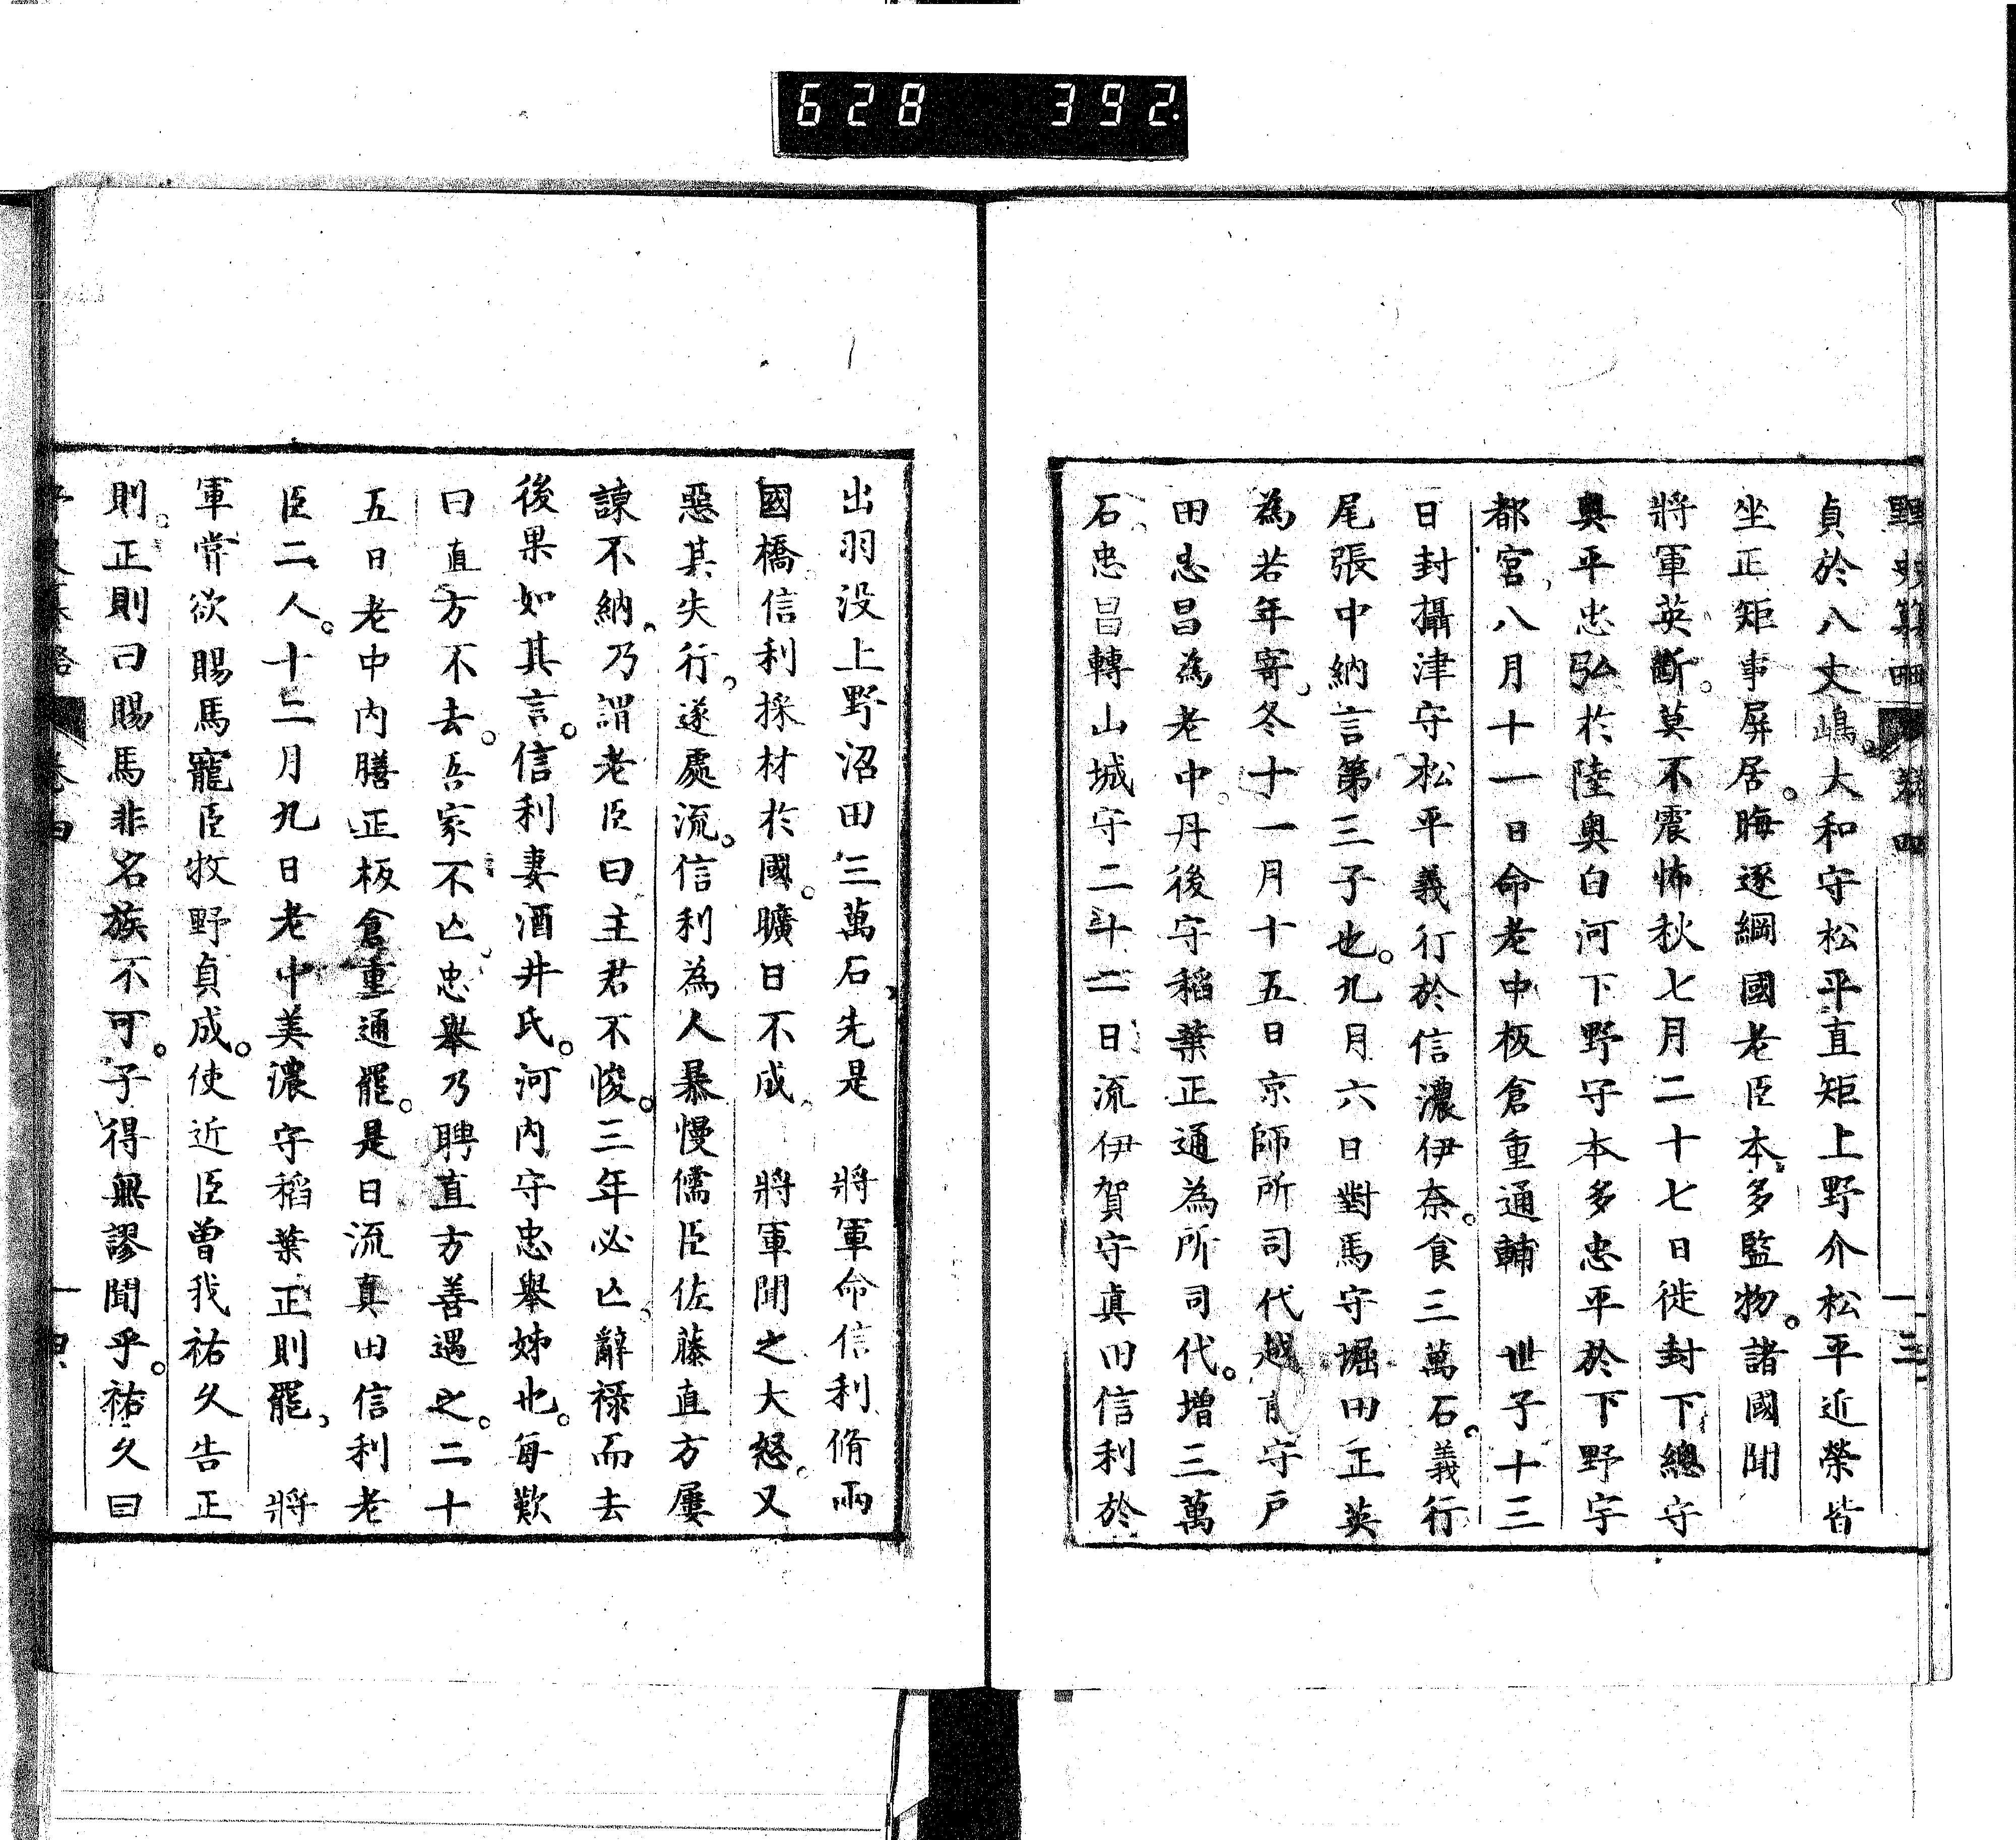 628 392.
貞於八丈嶋。大和守松平直矩上野介松平近榮皆
坐正矩事屏居。晦逐綱國老臣本多監物。諸國聞
將軍英斷。莫不震怖秋七月二十七日徙封下總守
奧平忠弘於陸奧白河下野守本多忠平於下野宇
都宮、八月十一日命老中板倉重通輔　世子十三
日封攝津守松平義行於信濃伊奈。食三萬石。義行
尾張中納言第三子也。九月六日對馬守堀田正英
為若年寄、冬十一月十五日京師所司代越 守戶
田忠昌為老中。丹後守稻葉正通為所司代。增三萬
石、忠昌轉山城守二十二日流伊賀守真田信利於
出羽没上野沼田三萬石、先是　將軍命信利脩兩
國橋信利採材於國。曠日不成。　將軍聞之大怒。又
惡其失行、遂處流。信利為人暴慢儒臣佐藤直方屢
諫不納、乃謂老臣曰主君不悛。三年必亾、辭祿而去
後果如其言。信利妻酒井氏。河內守忠舉姊也。每歎
曰直方不去。吾家不亾、忠舉乃聘直方善遇之。二十
五日老中內膳正板倉重通罷。是日流真田信利老
臣二人。十二月九日老中美濃守稻葉正則罷、　將
軍嘗欲賜馬寵臣牧野貞成。使近臣曾我祐久告正
則。正則曰賜馬非名族不可。子得無謬聞乎。祐久曰